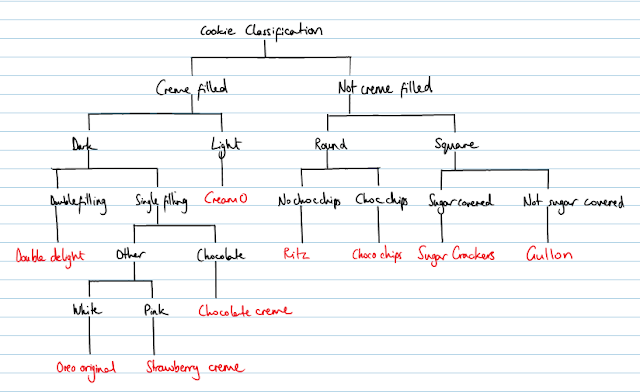 Cookie Classification
Creme filled Not creme filled
Dark Light Round Square
Double filling Single filling Cream O No choc chips Choc chips Sugar covered Not sugar covered
Double delight Other Chocolate Ritz Choco chips Sugar Crackers Gullon
White Pink Chocolate creme
Oreo original Strawberry creme